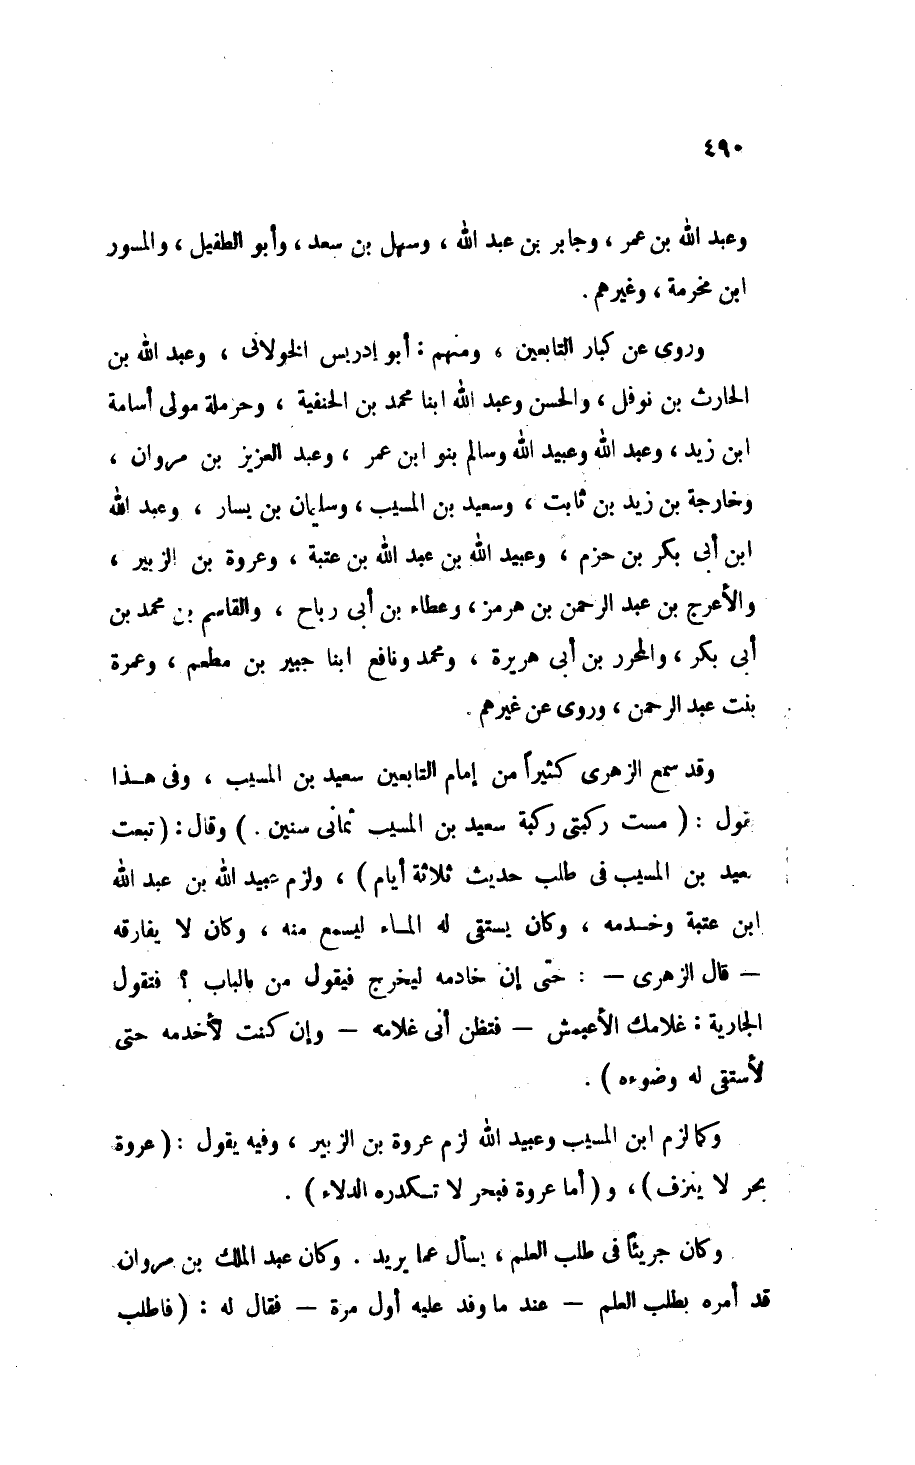 ٤٩٠
وعبد الله بن عمر ، وجابر بن عبد الله ، وسهل بن سعد ، وأبو الطفيل ، والمسور
ابن مخرمة ، وغيرهم .
وروى عن كبار التابعين ، ومنهم : أبو إدريس الخولانى ، وعبد الله بن
الحارث بن نوفل ، والحسن وعبد الله ابنا محمد بن الحنفية ، وحرملة مولى أسامة
ابن زيد ، وعبد الله وعبيد الله وسالم بنو ابن عمر ، وعبد العزيز بن مروان ،
وخارجة بن زيد بن ثابت ، وسعيد بن المسيب ، وسليمان بن يسار ، وعبد الله
ابن أبى بكر بن حزم ، وعبيد الله بن عبد الله بن عتبة ، وعروة بن الزبير ،
والأعرج بن عبد الرحمن بن هرمز ، وعطاء بن أبى رباح ، والقاسم بن محمد بن
أبى بكر ، والمحرر بن أبى هريرة ، ومحمد ونافع ابنا جبير بن مطعم ، وعمرة
بنت عبد الرحمن ، وروى عن غيرهم .
وقد سمع الزهرى كثيراً من إمام التابعين سعيد بن المسيب ، وفى هـذا
يقول : ( مست ركبتى ركبة سعيد بن المسيب ثمانى سنين . ) وقال : ( تبعت
سعيد بن المسيب فى طلب حديث ثلاثة أيام ) ، ولزم عبيد الله بن عبد الله
ابن عتبة وخـدمه ، وكان يستقى له المـاء ليسمع منه ، وكان لا يفارقه
— قال الزهرى — : حتى إن خادمه ليخرج فيقول من بالباب ؟ فتقول
الجارية : غلامك الأعيمش — فتظن أنى غلامه — وإن كنت لأخدمه حتى
لأستقى له وضوءه ) .
وكما لزم ابن المسيب وعبيد الله لزم عروة بن الزبير ، وفيه يقول : ( عروة
بحر لا ينزف ) ، و ( أما عروة فبحر لا تـكدره الدلاء ) .
وكان جريئاً فى طلب العلم ، يسأل عما يريد . وكان عبد الملك بن مروان
قد أمره بطلب العلم — عند ما وفد عليه أول مرة — فقال له : ( فاطلب